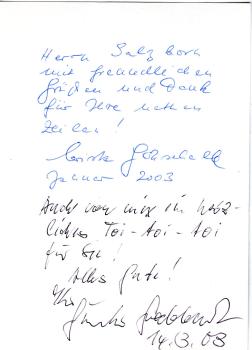 Herrn Salzborn
mit freundlichen
Grüßen und Dank
für Ihre netten
Zeilen!
Januar 2003
Auch von mir ein herz-
liches Toi-toi-toi
für Sie!
Alles Gute!
Ihr
14.3.03